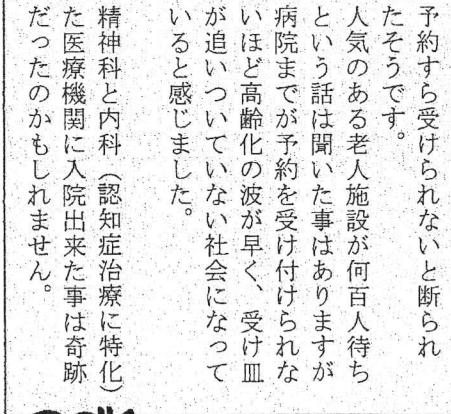 予約すら受けられないと断られ
たそうです。
人気のある老人施設が何百人待ち
という話は聞いた事はありますが
病院までが予約を受け付けられな
いほど高齢化の波が早く、受け皿
が追いついていない社会になって
いると感じました。
精神科と内科（認知症治療に特化）
た医療機関に入院出来た事は奇跡
だったのかもしれません。